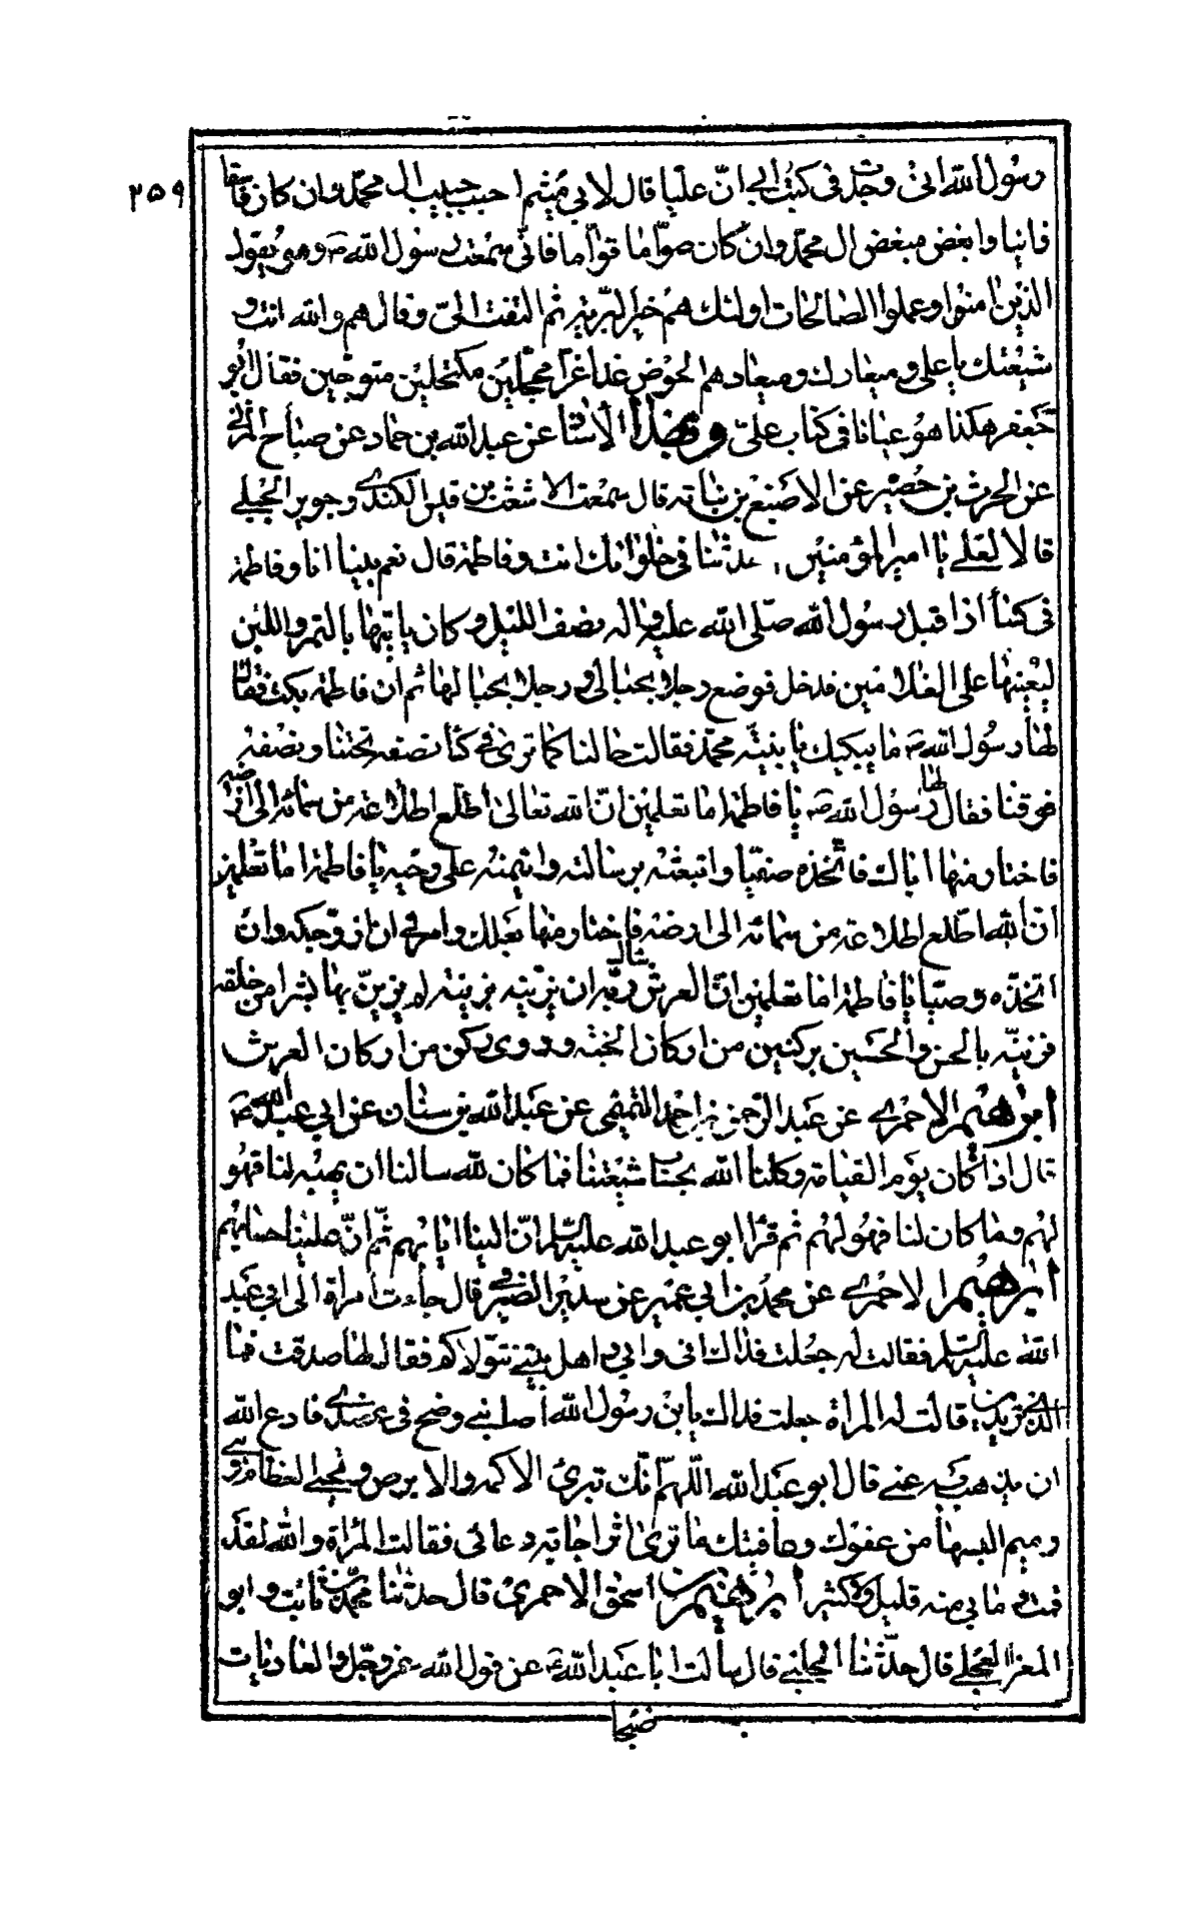 ٢٥٩
رسول الله انى وجدت فى كتب ابى انّ عليا قال لابى ميثم احبب حبيب ال محمد وان كان فاسقا
زانيا وابغض مبغض ال محمد وان كان صوّاما قوّاما فانّى سمعت رسول الله ص وهو يقول
الذين امنوا وعملوا الصالحات اولئك هم خير البريّة ثم التفت الىّ وقال هم والله انت و
شيعتك يا على وميعادك وميعادهم الحوض غدا غرّا محجّلين مكتحلين متوجين فقال ابو
جعفر هكذا هو عيانا فى كتاب علىّ وبهذا الاسناد عن عبدالله بن حماد عن صباح المزنى
عن الحرث بن حصيره عن الاصبغ بن نباته قال سمعت الاشعث بن قيس الكندى وجويبر الجبلى
قالا لعلى يا امير المؤمنين حدثنا فى خلواتك انت وفاطمة قال نعم بينا انا وفاطمة
فى كسا اذا قبل رسول الله صلى الله عليه واله نصف الليل وكان ياتيها بالتمر واللبن
ليعينها على الغلامين فدخل فوضع رجلا بحبالى ورجلا بحبالها ثم ان فاطمة بكت فقال
لها رسول الله ص ما يبكيك يا بنيّة محمد فقالت حالنا كما ترى فى كسا نصفه تحتنا ونصفه
فوقنا فقال لها رسول الله ص يا فاطمة اما تعلمين انّ الله تعالى اطلع اطلاعة من سمائه الى ارضه
فاختار منها اباك فاتخذه صفيّا وابتعثه برسالته وائتمنه على وحيه يا فاطمة اما تعلمين
انّ الله اطّلع اطلاعة من سمائه الى ارضه فاختار منها بعلك وامرنى ان ازوّجكه وان
اتخذه وصيّا يا فاطمة اما تعلمين انّ العرش سال ربّه ان يزيّنه بزينة لم يزيّن بها بشرا من خلقه
فزينّه بالحسن والحسين بركنين من اركان الجنّه وروى ركن من اركان العرش
ابرهيم الاحمرى عن عبد الرحمن بن احمد التميمى عن عبدالله بن سنان عن ابى عبدالله ع
قال اذا كان يوم القيامة وكلنا الله بحساب شيعتنا فما كان لله سالنا ان يهبه لنا فهو
لهم وما كان لنا فهو لهم ثم قرأ ابو عبد الله عليه السلم انّ الينا ايابهم ثمّ انّ علينا حسابهم
ابرهيم الاحمرى عن محمد بن ابى عمير عن سدير الصيرفى قال جاءت امراة الى ابى عبد
الله عليه السلم فقالت له جعلت فداك انى وابى واهل بيتى نتولاكم فقال لها صدقت فما
الذى تريدين قالت له المراة جعلت فداك يابن رسول الله اصابنى وضح فى عضدى فادع الله
ان يذهب به عنى قال ابو عبد الله اللّهمّ انّك تبرئ الاكمه والابرص وتحيى العظام وهى
رميم البسها من عفوك وعافيتك ما ترى اثر اجابة دعائى فقالت المراة والله لقد
قمت وما بى منه قليل ولا كثير ابرهيم بن اسحق الاحمرى قال حدثنا محمد بن ثابت وابو
المغرا العجلى قال حدّثنا الحلبى قال سالت ابا عبد الله ع عن قول الله عز وجل والعاديات
ضبحا